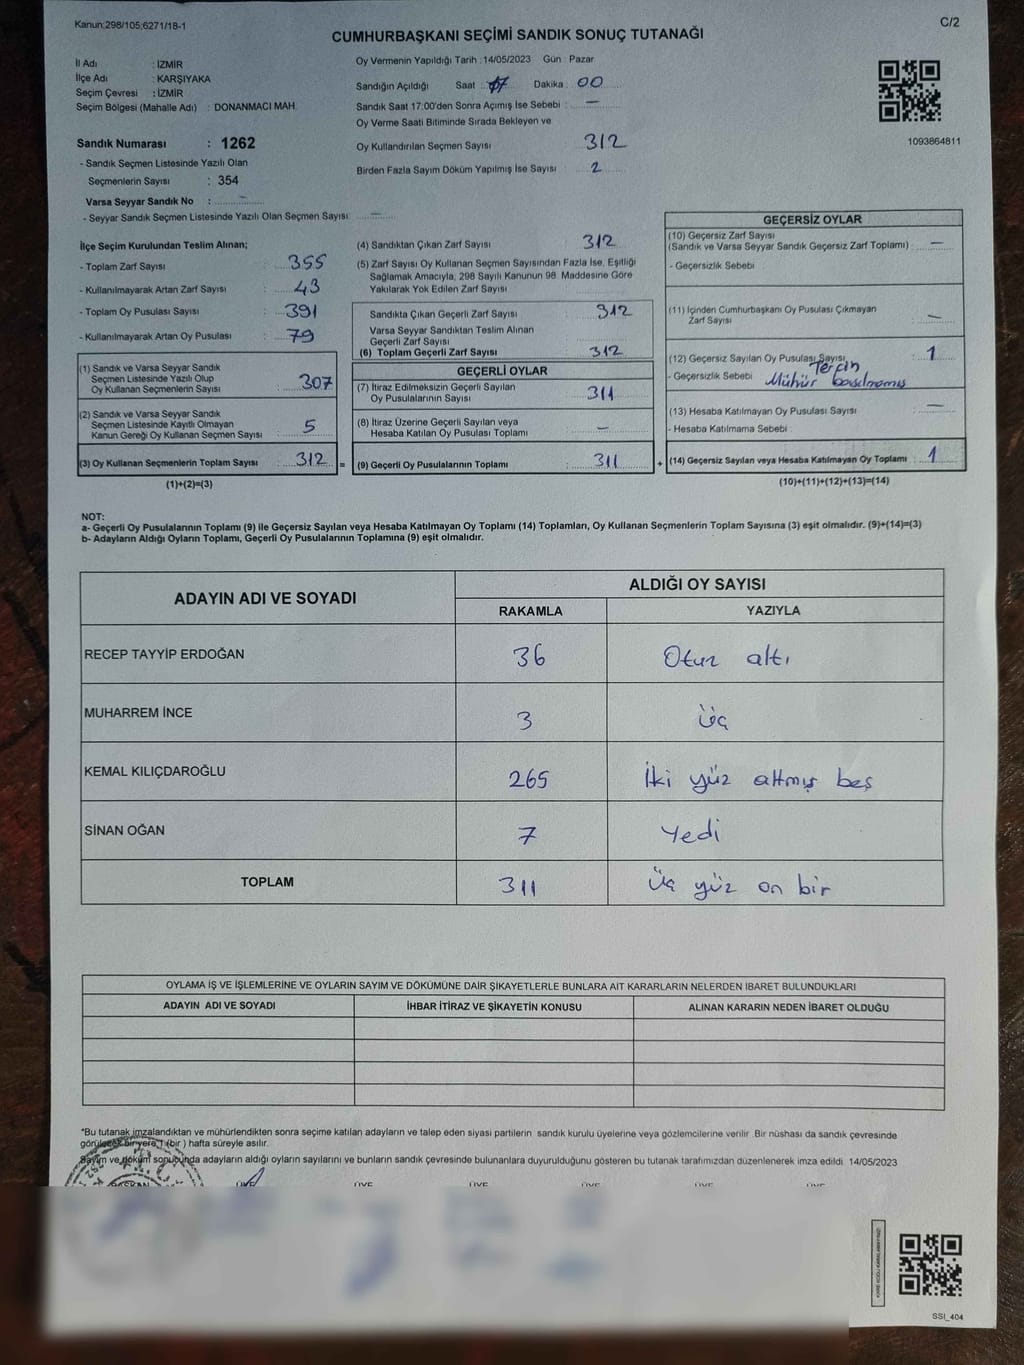 Kanun:298/105;6271/18-1
C/2
CUMHURBAŞKANI SEÇİMİ SANDIK SONUÇ TUTANAĞI
İl Adı : İZMİR
İlçe Adı : KARŞIYAKA
Seçim Çevresi : İZMİR
Seçim Bölgesi (Mahalle Adı) : DONANMACI MAH.
Sandık Numarası : 1262
- Sandık Seçmen Listesinde Yazılı Olan
Seçmenlerin Sayısı : 354
Varsa Seyyar Sandık No : -
- Seyyar Sandık Seçmen Listesinde Yazılı Olan Seçmen Sayısı: -
Oy Vermenin Yapıldığı Tarih :14/05/2023 Gün : Pazar
Sandığın Açıldığı Saat : 17 Dakika : 00
Sandık Saat 17:00'den Sonra Açımış İse Sebebi : -
Oy Verme Saati Bitiminde Sırada Bekleyen ve
Oy Kullandırılan Seçmen Sayısı : 312
Birden Fazla Sayım Döküm Yapılmış İse Sayısı : 2
1093864811
İlçe Seçim Kurulundan Teslim Alınan;
- Toplam Zarf Sayısı : 355
- Kullanılmayarak Artan Zarf Sayısı : 43
- Toplam Oy Pusulası Sayısı : 391
- Kullanılmayarak Artan Oy Pusulası : 79
(1) Sandık ve Varsa Seyyar Sandık
Seçmen Listesinde Yazılı Olup
Oy Kullanan Seçmenlerin Sayısı : 307
(2) Sandık ve Varsa Seyyar Sandık
Seçmen Listesinde Kayıtlı Olmayan
Kanun Gereği Oy Kullanan Seçmen Sayısı : 5
(3) Oy Kullanan Seçmenlerin Toplam Sayısı : 312 =
(1)+(2)=(3)
(4) Sandıktan Çıkan Zarf Sayısı : 312
(5) Zarf Sayısı Oy Kullanan Seçmen Sayısından Fazla İse, Eşitliği
Sağlamak Amacıyla, 298 Sayılı Kanunun 98. Maddesine Göre
Yakılarak Yok Edilen Zarf Sayısı :
Sandıkta Çıkan Geçerli Zarf Sayısı : 312
Varsa Seyyar Sandıktan Teslim Alınan
Geçerli Zarf Sayısı :
(6) Toplam Geçerli Zarf Sayısı : 312
GEÇERLİ OYLAR
(7) İtiraz Edilmeksizin Geçerli Sayılan
Oy Pusulalarının Sayısı : 311
(8) İtiraz Üzerine Geçerli Sayılan veya
Hesaba Katılan Oy Pusulası Toplamı : -
(9) Geçerli Oy Pusulalarının Toplamı : 311 +
GEÇERSİZ OYLAR
(10) Geçersiz Zarf Sayısı
(Sandık ve Varsa Seyyar Sandık Geçersiz Zarf Toplamı) : -
- Geçersizlik Sebebi :
(11) İçinden Cumhurbaşkanı Oy Pusulası Çıkmayan
Zarf Sayısı : -
(12) Geçersiz Sayılan Oy Pusulası Sayısı : 1
- Geçersizlik Sebebi : Tercih
Mühür basılmamış
(13) Hesaba Katılmayan Oy Pusulası Sayısı : -
- Hesaba Katılmama Sebebi :
(14) Geçersiz Sayılan veya Hesaba Katılmayan Oy Toplamı : 1
(10)+(11)+(12)+(13)=(14)
NOT:
a- Geçerli Oy Pusulalarının Toplamı (9) ile Geçersiz Sayılan veya Hesaba Katılmayan Oy Toplamı (14) Toplamları, Oy Kullanan Seçmenlerin Toplam Sayısına (3) eşit olmalıdır. (9)+(14)=(3)
b- Adayların Aldığı Oyların Toplamı, Geçerli Oy Pusulalarının Toplamına (9) eşit olmalıdır.
ADAYIN ADI VE SOYADI
ALDIĞI OY SAYISI
RAKAMLA YAZIYLA
RECEP TAYYİP ERDOĞAN 36 Otuz altı
MUHARREM İNCE 3 Üç
KEMAL KILIÇDAROĞLU 265 İki yüz altmış beş
SİNAN OĞAN 7 Yedi
TOPLAM 311 Üç yüz on bir
OYLAMA İŞ VE İŞLEMLERİNE VE OYLARIN SAYIM VE DÖKÜMÜNE DAİR ŞİKAYETLERLE BUNLARA AİT KARARLARIN NELERDEN İBARET BULUNDUKLARI
ADAYIN ADI VE SOYADI İHBAR İTİRAZ VE ŞİKAYETİN KONUSU ALINAN KARARIN NEDEN İBARET OLDUĞU
*Bu tutanak imzalandıktan ve mühürlendikten sonra seçime katılan adayların ve talep eden siyasi partilerin sandık kurulu üyelerine veya gözlemcilerine verilir. Bir nüshası da sandık çevresinde
görülecek bir yere 1 (bir ) hafta süreyle asılır.
Sayım ve döküm sonucunda adayların aldığı oyların sayılarını ve bunların sandık çevresinde bulunanlara duyurulduğunu gösteren bu tutanak tarafımızdan düzenlenerek imza edildi 14/05/2023
BAŞKAN ÜYE ÜYE ÜYE ÜYE ÜYE ÜYE
SSI_404